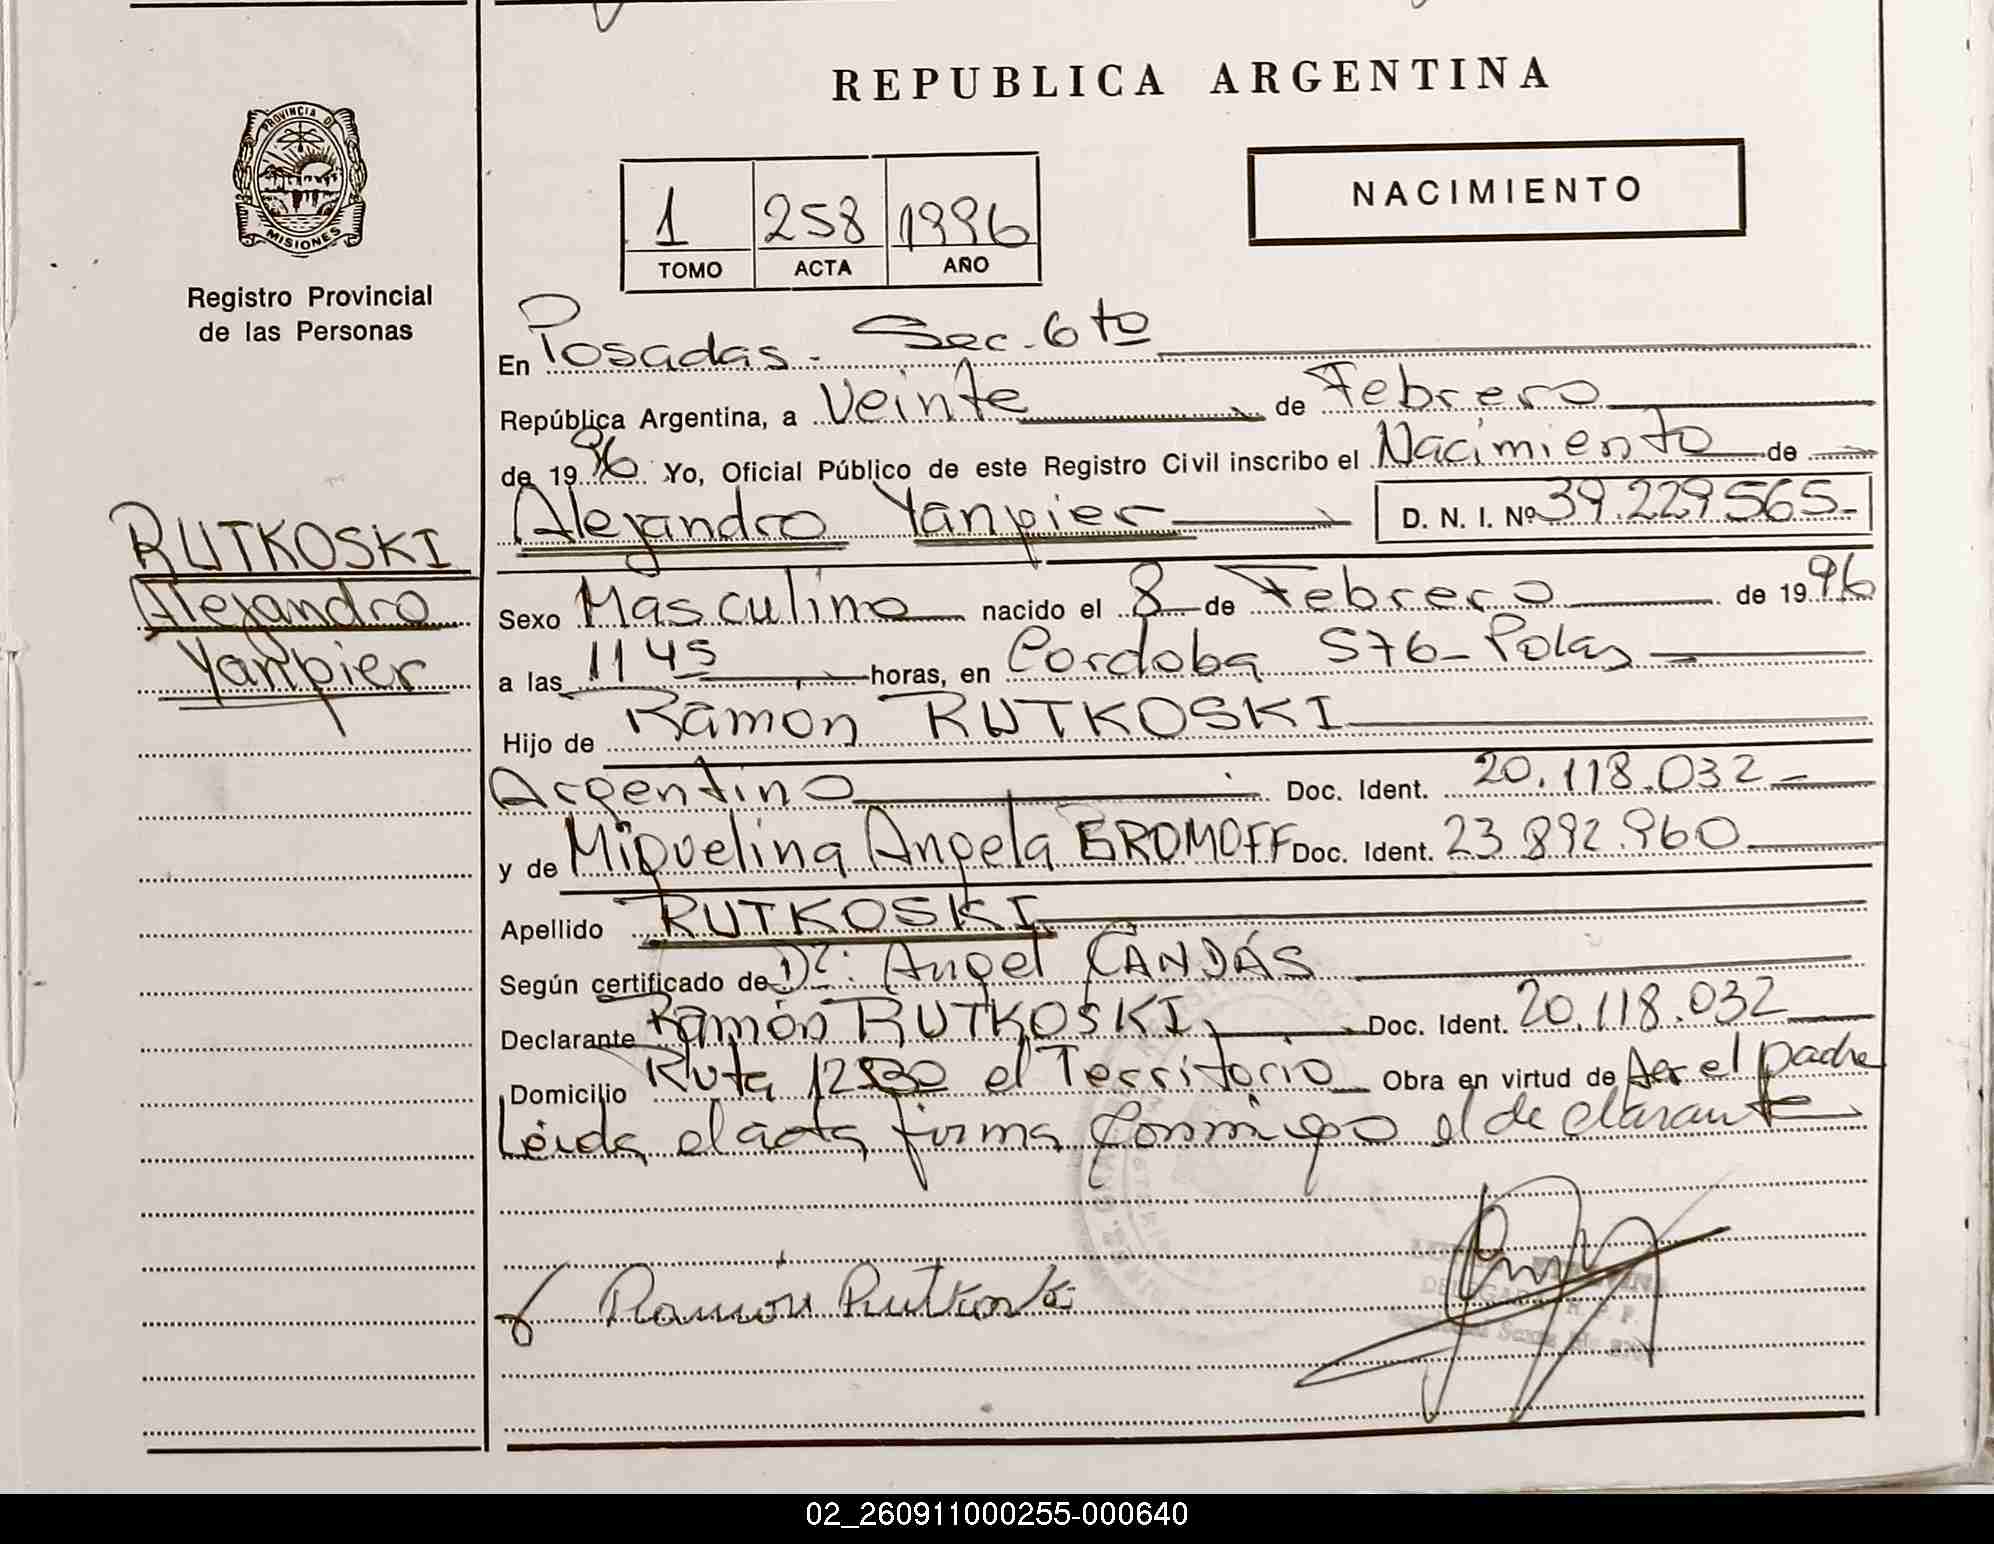 REPUBLICA ARGENTINA
PROVINCIA DE
MISIONES
Registro Provincial
de las Personas
NACIMIENTO
1 258 1996
TOMO ACTA AÑO
En Posadas - Sec. 6to
República Argentina, a Veinte de Febrero
de 1996 Yo, Oficial Público de este Registro Civil inscribo el Nacimiento de
Alejandro Yanpier D. N. I. Nº 39.229.565-
RUTKOSKI
Alejandro
Yanpier
Sexo Masculino nacido el 8 de Febrero de 1996
a las 11 45 horas, en Cordoba 576-
Hijo de Ramon RUTKOSKI
Argentino Doc. Ident. 20.118.032
y de Miguelina Angela BROMOFF Doc. Ident. 23.892.960
Apellido RUTKOSKI
Según certificado de Dr. Angel CANDÁS
Declarante Ramón RUTKOSKI Doc. Ident. 20.118.032
Domicilio Ruta 12 el Territorio Obra en virtud de ser el padre
Leida el acta firma conmigo el declarante
Ramón Rutkoski
DELEGADA R. P. P.
02_260911000255-000640